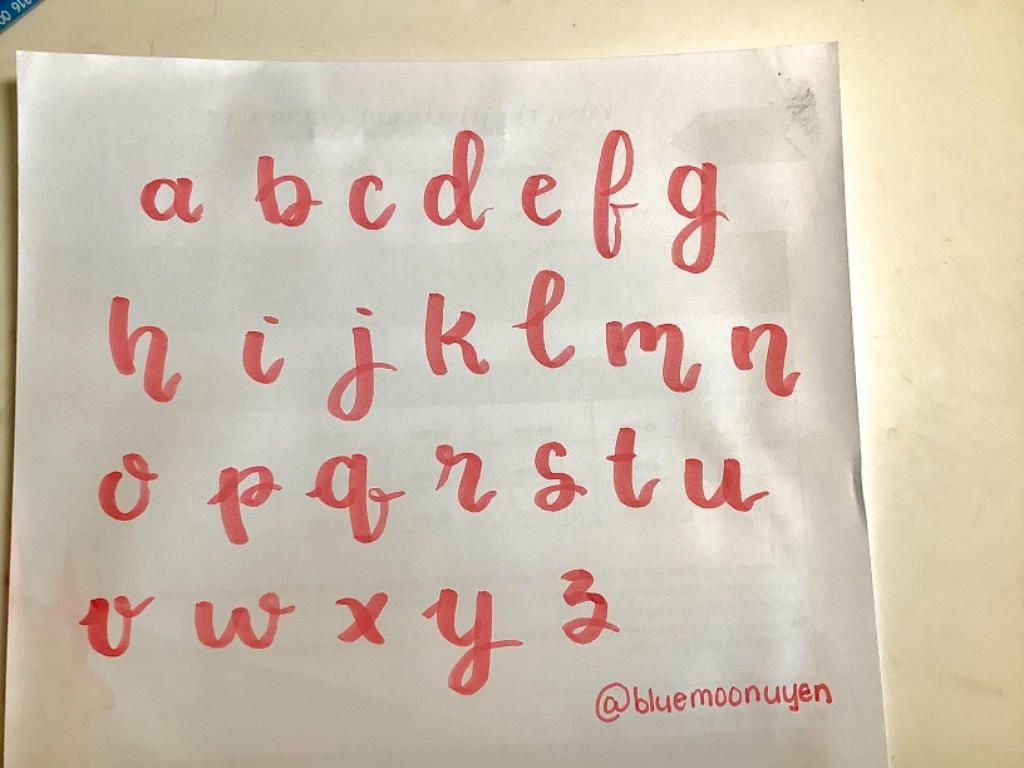 a b c d e f g
h i j k l m n
o p q r s t u
v w x y z
@bluemoonuyen